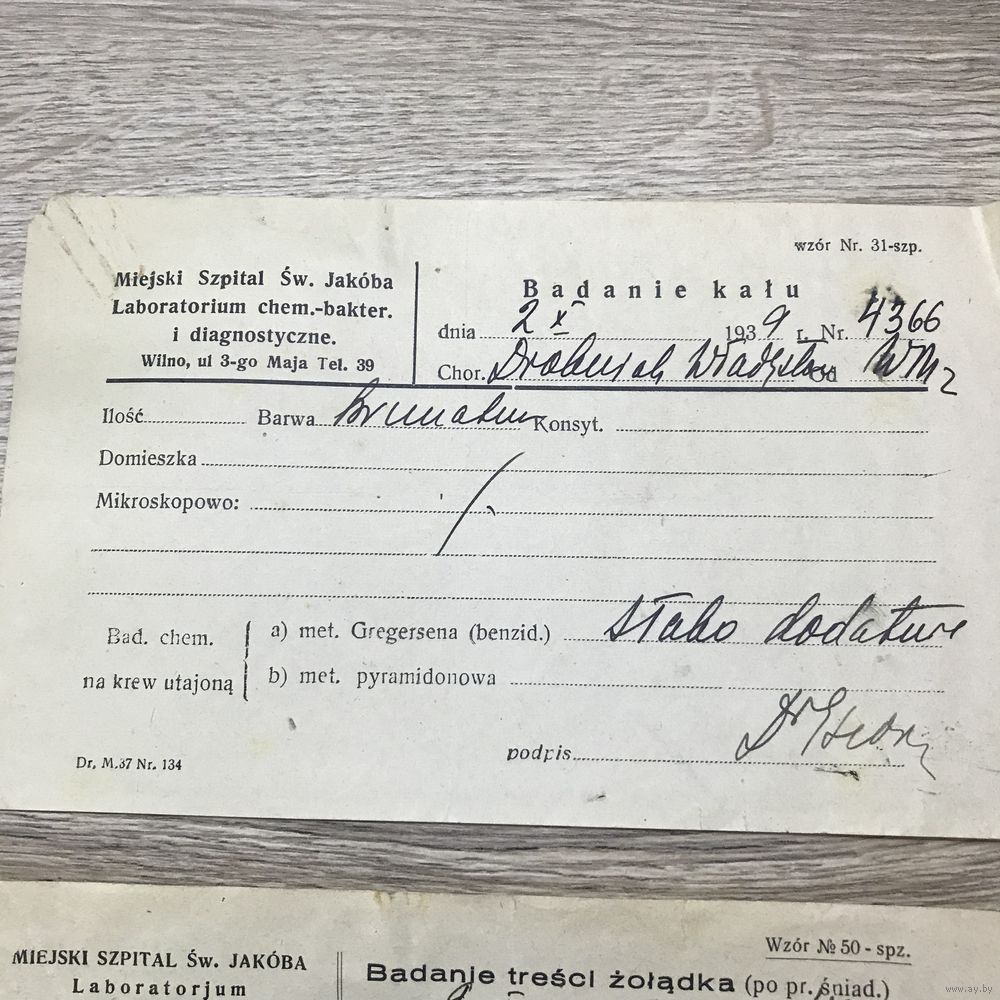 wzór Nr. 31-szp.
Miejski Szpital Św. Jakóba
Laboratorium chem.-bakter.
i diagnostyczne.
Wilno, ul 3-go Maja Tel. 39
Badanie kału
dnia 2 X 1939 r. Nr. 4366
Chor. Władysław Od
Ilość Barwa brunatna Konsyt.
Domieszka
Mikroskopowo:
Bad. chem.
na krew utajoną
a) met. Gregersena (benzid.) słabo dodatnie
b) met. pyramidonowa
podpis Dr
Dr. M.37 Nr. 134
Wzór № 50 - spz.
MIEJSKI SZPITAL Św. JAKÓBA
Laboratorjum
Badanje treści żołądka (po pr. śniad.)
www.ay.by